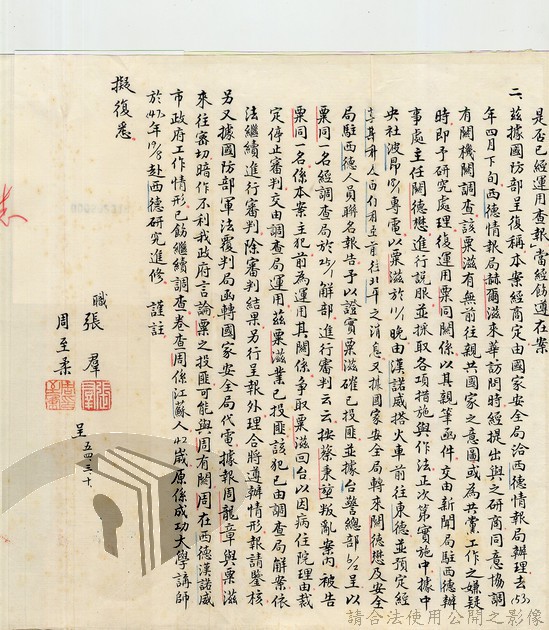 是否已經運用查報當經飭遵在案
二、茲據國防部呈復稱本案經商定由國家安全局洽西德情報局辦理去(53)
年四月下旬西德情報局赫爾滋來華訪問時經提出與之研商同意協調
有關機關調查該粟滋有無前往親共國家之意圖或為共黨工作之嫌疑
時即予研究處理復運用粟同關係以其親筆函件交由新聞局駐西德辦
事處主任關德懋進行說服並採取各項措施與作法正次第實施中據中
央社波昂專電以粟滋於晚由漢諾威搭火車前往東德並預定經
前往北平之消息又據國家安全局轉來關德懋及安全
局駐西德人員聯名報告予以證實粟滋確已投匪並據台警總部呈以
粟同一名經調查局於解部進行審判云云按蔡秉堃叛亂案內被告
粟同一名係本案主犯前為運用其關係爭取粟滋回台以因病住院理由裁
定停止審判交由調查局運用茲粟滋業已投匪該犯已由調查局解案依
法繼續進行審判除審判結果另行呈報外理合將遵辦情形報請鑒核
另又據國防部軍法覆判局函轉國家安全局代電據報周龍章與粟滋
來往審切暗作不利我政府言論粟之投匪可能與周有關周在西德漢諾威
市政府工作情形已飭繼續調查卷查周係江蘇人42歲原係成功大學講師
於47年赴西德研究進修 謹註
擬復悉
職 張群
周至柔
呈 五四三十
請合法使用公開之影像